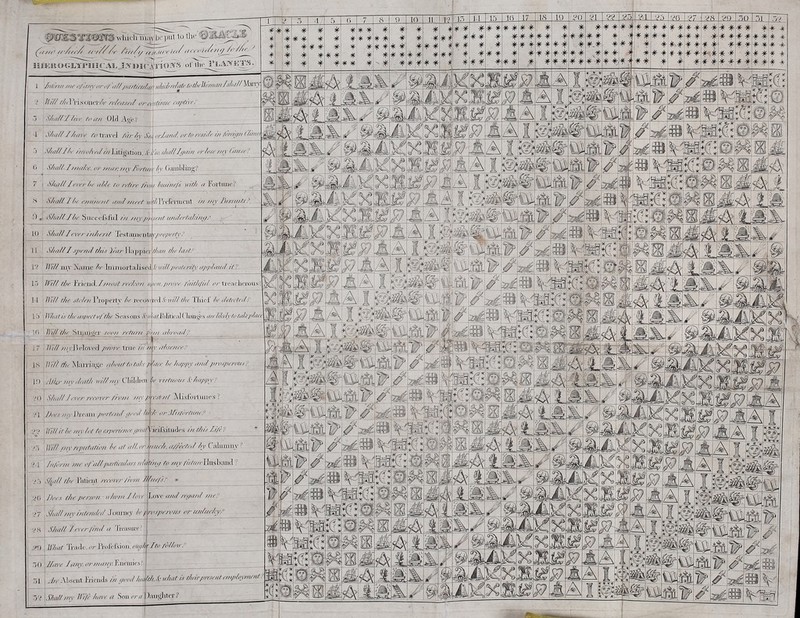 QUESTIONS which may be put to the ORACLE
(and which will be truly answered according to the
HIEROGLYPHICAL INDICATIONS of the PLANETS.
1 2 3 4 5 6 7 8 9 10 11 12 13 14 15 16 17 18 19 20 21 22 23 24 25 26 27 28 29 30 31 32
1 Inform me of any or of all particulars which relate to the Woman I shall Marry
2 Will the Prisoner be released or continue captive?
3 Shall I live to an Old Age?
4 Shall I have to travel far by Sea or Land, or to reside in foreign Climes
5 Shall I be involved in Litigation, & if so shall I gain or lose my Cause?
6 Shall I make, or mar, my Fortune by Gambling?
7 Shall I ever be able to retire from business with a Fortune?
8 Shall I be eminent and meet with Preferment in my Pursuits?
9 Shall I be Successful in my present undertaking?
10 Shall I ever inherit Testamentary property?
11 Shall I spend this Year Happier than the last?
12 Will my Name be Immortalised, & will posterity applaud it?
13 Will the Friend I most reckon upon, prove faithful or treacherous
14 Will the stolen Property be recovered & will the Thief be detected?
15 What is the aspect of the Seasons & what Political Changes are likely to take place
16 Will the Stranger soon return from abroad?
17 Will my Beloved prove true in my absence?
18 Will the Marriage about to take place be happy and prosperous?
19 After my death will my Children be virtuous & happy?
20 Shall I ever recover from my present Misfortunes?
21 Does my Dream portend good luck or Misfortune?
22 Will it be my lot to experience great Vicissitudes in this Life?
23 Will my reputation be at all, or much affected by Calumny?
24 Inform me of all particulars relating to my future Husband?
25 Shall the Patient recover from Illness?
26 Does the person whom I love Love and regard me?
27 Shall my intended Journey be prosperous or unlucky?
28 Shall I ever find a Treasure?
29 What Trade, or Profession, ought I to follow?
30 Have I any, or many Enemies?
31 Are Absent Friends in good health, & what is their present employment
32 Shall my Wife have a Son or a Daughter?